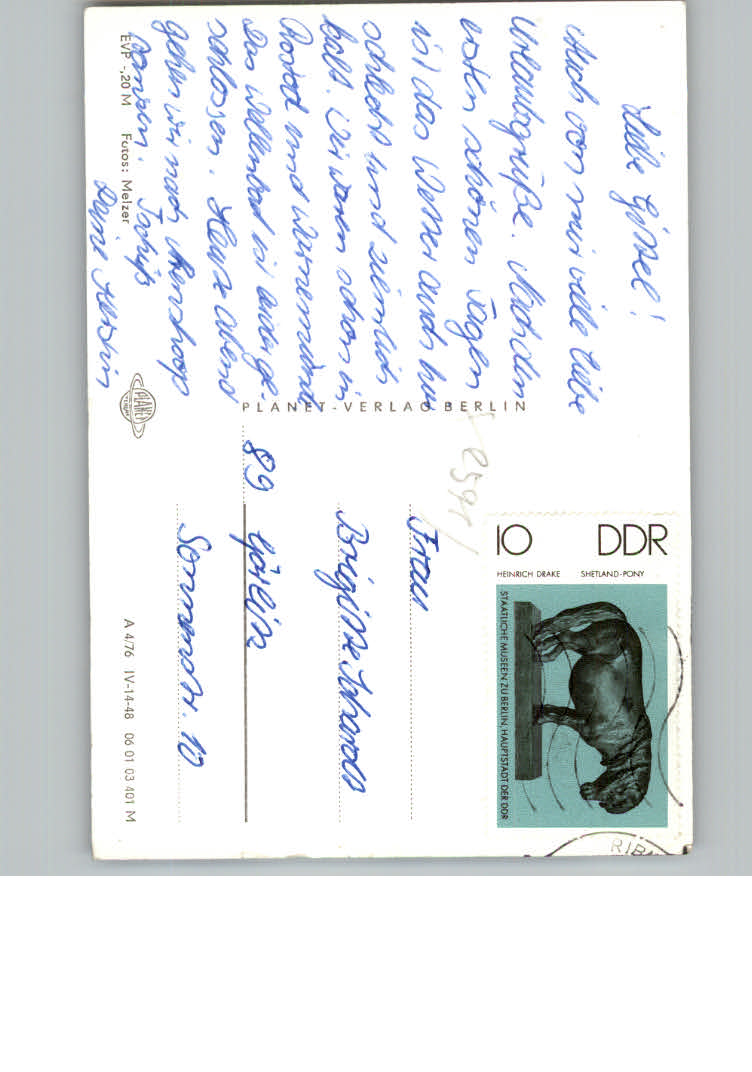 Liebe Gissel!
Auch von mir viele liebe
Urlaubsgrüße. Nach den
ersten schönen Tagen
ist das Wetter auch hier
schlecht und ziemlich
kalt. Wir waren schon in
Rostock und Warnemünde
Das Wellenbad ist leider ge-
schlossen. Heute abend
gehen wir nach Ahrenshoop
tanzen. Tschüß
Deine Kerstin
EVP -,20 M Fotos: Melzer
PLANET
PLANET-VERLAG BERLIN
10 DDR
HEINRICH DRAKE SHETLAND-PONY
STAATLICHE MUSEEN ZU BERLIN, HAUPTSTADT DER DDR
RIBN
Frau
Brigitte
89 Görlitz
Sonnenstr. 10
A 4/76 IV-14-48 06 01 03 401 M